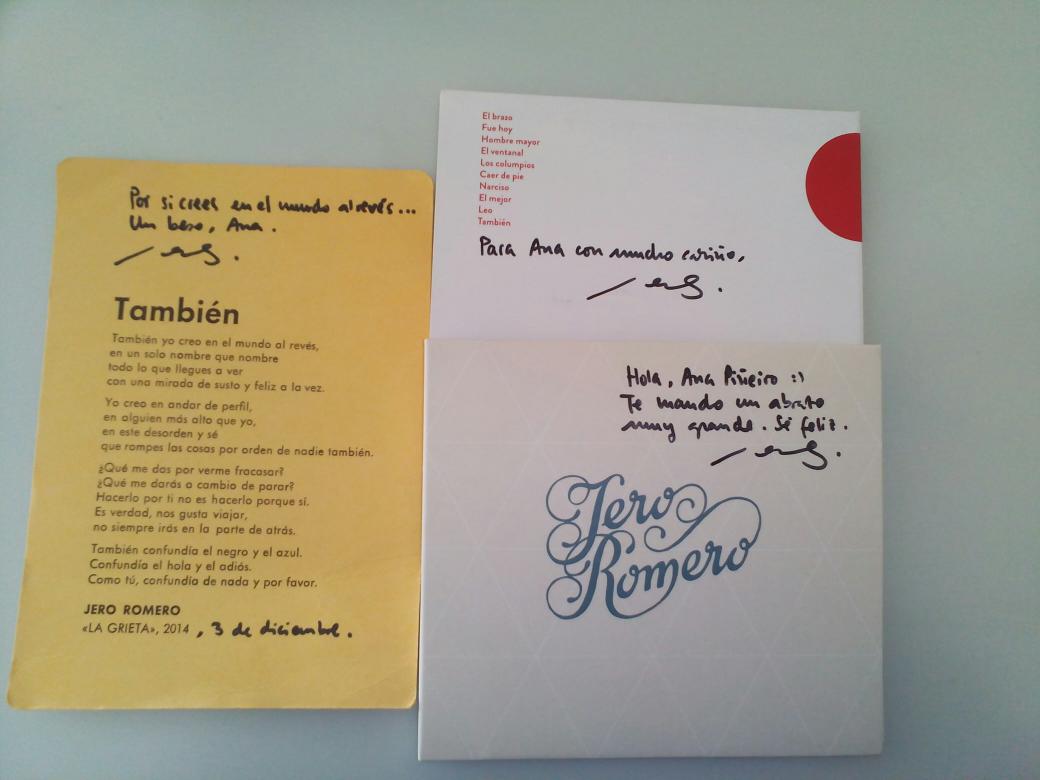 Por si crees en el mundo al revés...
Un beso, Ana.
También
También yo creo en el mundo al revés,
en un solo nombre que nombre
todo lo que llegues a ver
con una mirada de susto y feliz a la vez.
Yo creo en andar de perfil,
en alguien más alto que yo,
en este desorden y sé
que rompes las cosas por orden de nadie también.
¿Qué me das por verme fracasar?
¿Qué me darás a cambio de parar?
Hacerlo por ti no es hacerlo porque sí.
Es verdad, nos gusta viajar,
no siempre irás en la parte de atrás.
También confundía el negro y el azul.
Confundía el hola y el adiós.
Como tú, confundía de nada y por favor.
JERO ROMERO
«LA GRIETA», 2014, 3 de diciembre.
El brazo
Fue hoy
Hombre mayor
El ventanal
Los columpios
Caer de pie
Narciso
El mejor
Leo
También
Para Ana con mucho cariño,
Hola, Ana Piñeiro :)
Te mando un abrazo
muy grande. Sé feliz.
Jero
Romero